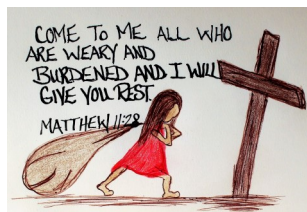 COME TO ME ALL WHO
ARE WEARY AND
BURDENED AND I WILL
GIVE YOU REST.
MATTHEW 11:28